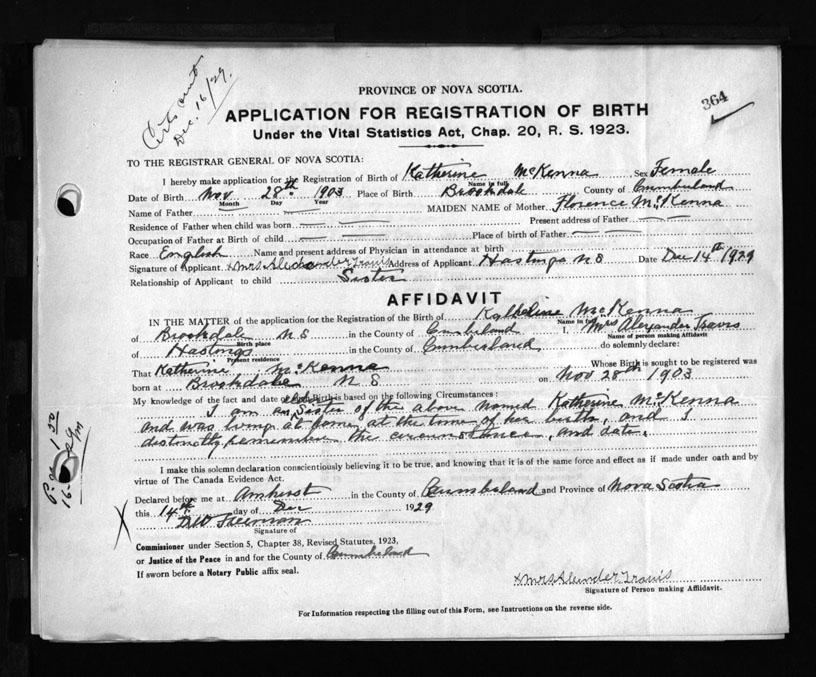 Certs sent
Dec. 16/29.
364
PROVINCE OF NOVA SCOTIA.
APPLICATION FOR REGISTRATION OF BIRTH
Under the Vital Statistics Act, Chap. 20, R. S. 1923.
TO THE REGISTRAR GENERAL OF NOVA SCOTIA:
I hereby make application for the Registration of Birth of Katherine McKenna Sex Female
Name in full
Date of Birth Nov 28th 1903 Place of Birth Brookdale County of Cumberland
Month Day Year
Name of Father — MAIDEN NAME of Mother Florence McKenna
Residence of Father when child was born — — Present address of Father — —
Occupation of Father at Birth of child — — Place of birth of Father — —
Race English Name and present address of Physician in attendance at birth —
Signature of Applicant x Mrs Alexander Travis Address of Applicant Hastings N S Date Dec 14th 1929
Relationship of Applicant to child Sister
AFFIDAVIT
IN THE MATTER of the application for the Registration of the Birth of Katherine McKenna
Name in full
of Brookdale N S in the County of Cumberland I, Mrs Alexander Travis
Birth place Name of Person making Affidavit
of Hastings in the County of Cumberland do solemnly declare:
Present residence
That Katherine McKenna Whose Birth is sought to be registered was
born at Brookdale N S on Nov 28th 1903
My knowledge of the fact and date of such Birth is based on the following Circumstances:
I am an older Sister of the above named Katherine McKenna
and was living at home at the time of her birth, and I
distinctly remember the circumstance, and date.
I make this solemn declaration conscientiously believing it to be true, and knowing that it is of the same force and effect as if made under oath and by
virtue of The Canada Evidence Act.
Declared before me at Amherst in the County of Cumberland and Province of Nova Scotia
this 14th day of Dec 1929
Signature of
Commissioner under Section 5, Chapter 38, Revised Statutes, 1923,
or Justice of the Peace in and for the County of Cumberland
If sworn before a Notary Public affix seal.
x Mrs Alexander Travis
Signature of Person making Affidavit.
For Information respecting the filling out of this Form, see Instructions on the reverse side.